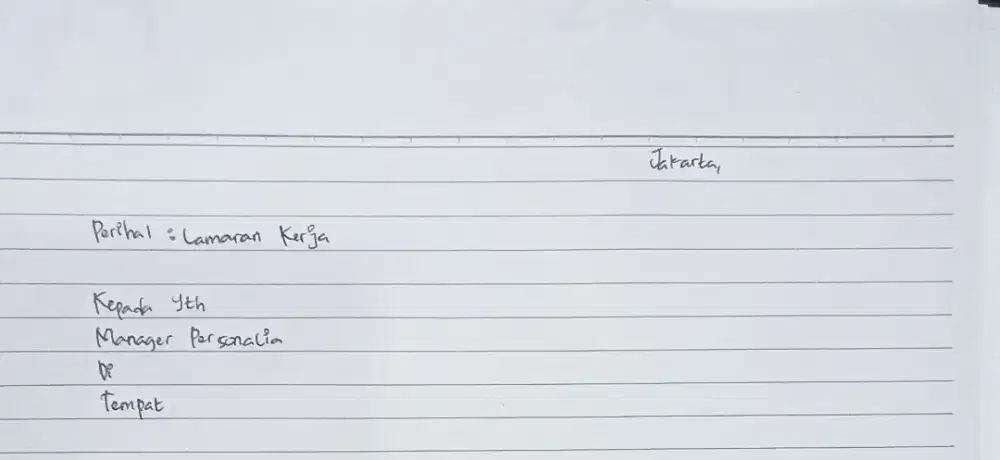 Jakarta,
Perihal : Lamaran Kerja
Kepada Yth
Manager Personalia
Di
Tempat